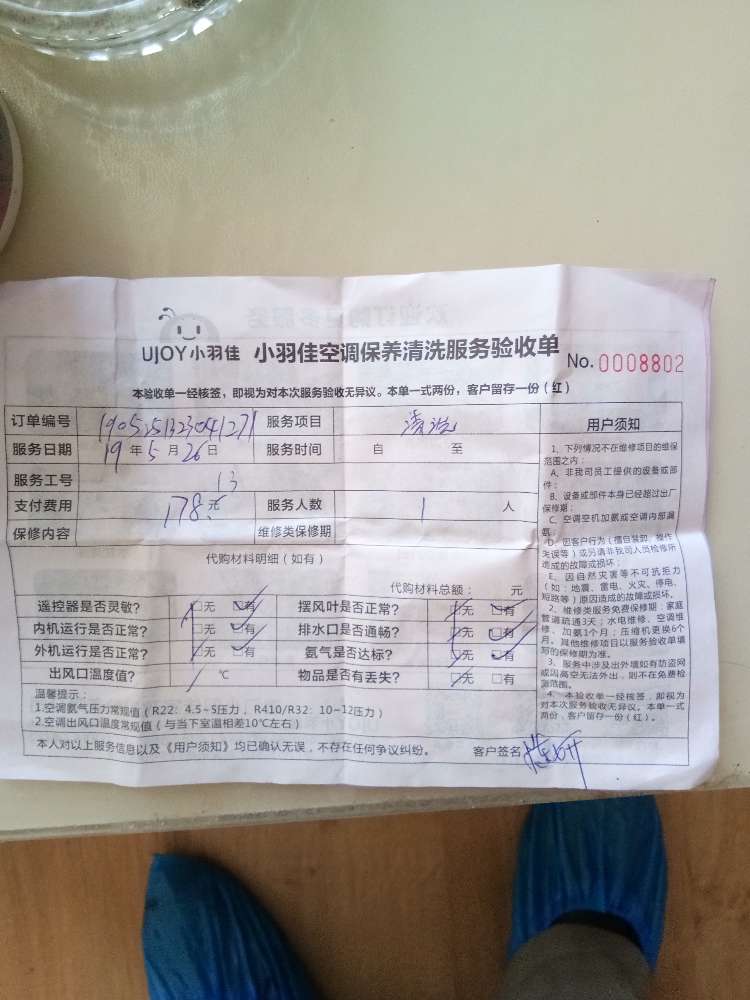 UJOY小羽佳 小羽佳空调保养清洗服务验收单 No. 0008802
本验收单一经核签，即视为对本次服务验收无异议。本单一式两份，客户留存一份（红）
订单编号 服务项目 清洗
服务日期 19年5月26日 服务时间 自 至
服务工号 13
支付费用 178元 服务人数 1 人
保修内容 维修类保修期
代购材料明细（如有）
代购材料总额： 元
遥控器是否灵敏？ □无 □有 摆风叶是否正常？ □无 □有
内机运行是否正常？ □无 □有 排水口是否通畅？ □无 □有
外机运行是否正常？ □无 □有 氨气是否达标？ □无 □有
出风口温度值？ / ℃ 物品是否有丢失？ □无 □有
温馨提示：
1.空调氨气压力常规值（R22：4.5~5压力，R410/R32：10~12压力）
2.空调出风口温度常规值（与当下室温相差10℃左右）
本人对以上服务信息以及《用户须知》均已确认无误，不存在任何争议纠纷。 客户签名
用户须知
1、下列情况不在维修项目的维保
范围之内：
A、非我司员工提供的设备或部
件；
B、设备或部件本身已经超过出厂
保修期；
C、空调空机加氨或空调内部漏
氨；
D、因客户行为（擅自装卸、操作
失误等）或另请非我司人员检修所
造成的故障或损坏；
E、因自然灾害等不可抗拒力
（如：地震、雷电、火灾、停电、
短路等）原因造成的故障或损坏。
2、维修类服务免费保修期：家庭
管道疏通3天；水电维修、空调维
修、加氨1个月；压缩机更换6个
月。其他维修项目以服务验收单填
写的保修期为准。
3、服务中涉及出外墙如有防盗网
或因高空无法外出，则不在免费检
测范围。
4、本验收单一经核签，即视为
对本次服务验收无异议。本单一式
两份，客户留存一份（红）。